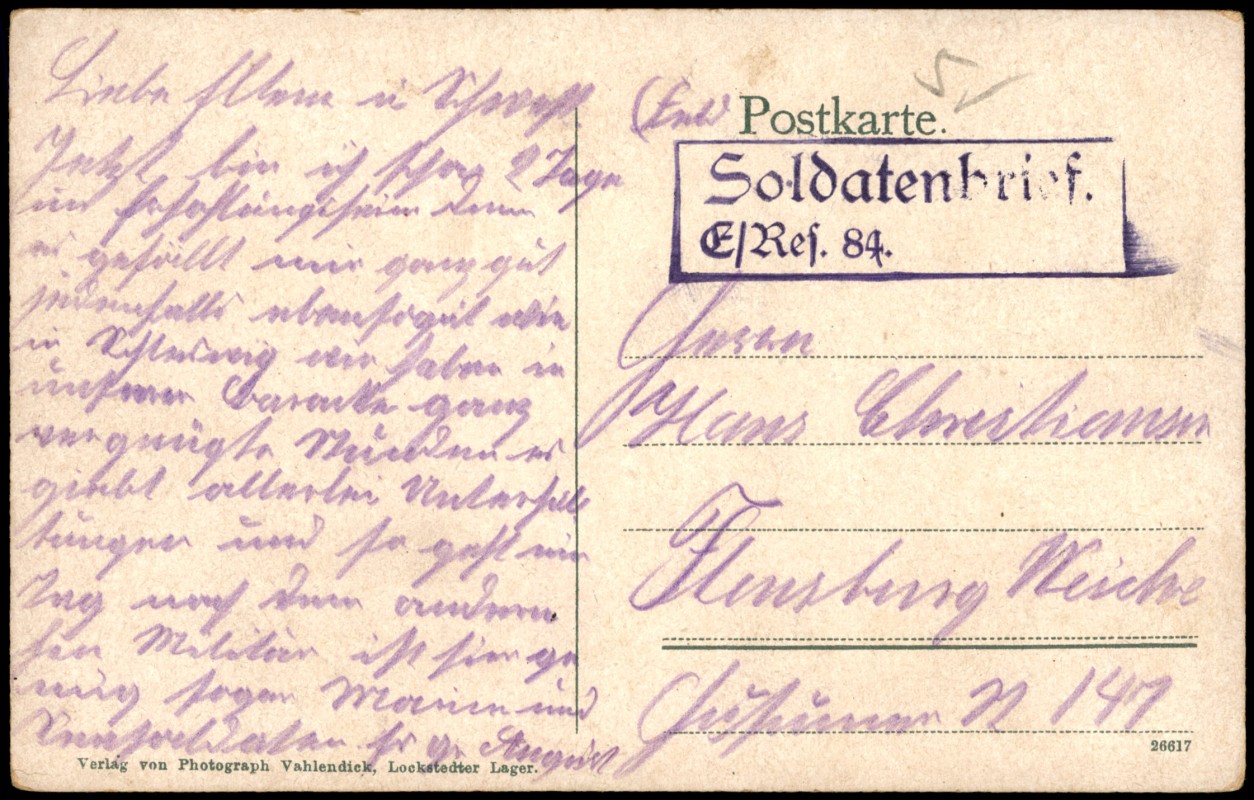 Liebe Eltern u Schwest.
Jetzt bin ich schon 2 Tage
im Erholungsheim denn
es gefällt mir ganz gut
jedenfalls ebensogut wie
in Schleswig wir haben in
unserer Baracke ganz
vergnügte Stunden es
giebt allerlei Unterhal
tungen und so geht ein
Tag nach dem andern
hin Militär ist hier ge
nug sogar Marine und
Seesoldaten August
Verlag von Photograph Vahlendick, Lockstedter Lager.
(Feld Postkarte.
Soldatenbrief.
E/Res. 84.
Herrn
Hans Christiansen
Flensburg Weiche
Husumer N 147
26617